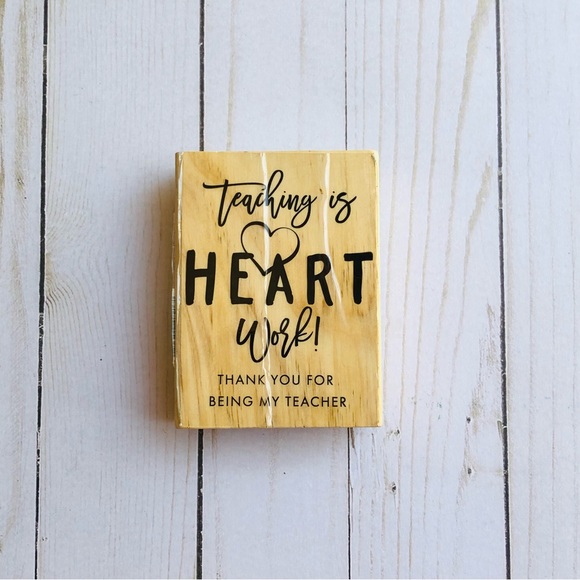 Teaching is
HEART
Work!
THANK YOU FOR
BEING MY TEACHER